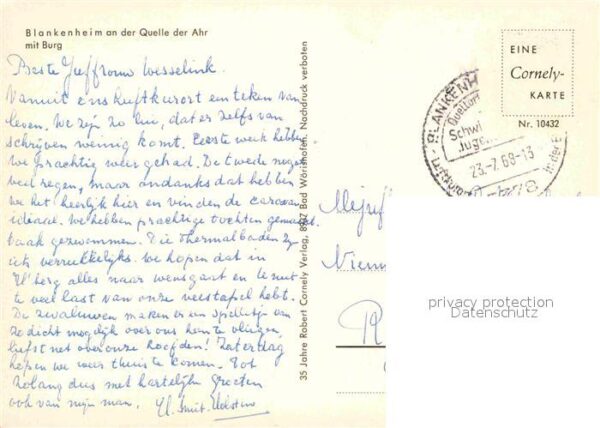 Blankenheim an der Quelle der Ahr
mit Burg
Beste Juffrouw Wesselink.
Vanuit ens luftkurort een teken van
leven. We zijn zo lui, dat er zelfs van
schrijven weinig komt. Eerste week hebben
we prachtig weer gehad. De tweede nogal
veel regen, maar ondanks dat hebben
we het heerlijk hier en vinden de caravan
ideaal. We hebben prachtige tochten gemaakt
vaak gezwommen. Die thermalbaden zijn
iets verrukkelijks. We hopen dat in
alles naar wens gaat en U niet
te veel last van onze veestapel hebt.
De zwaluwen maken er een spelletje van
zo dicht mogelijk over ons heen te vliegen,
liefst net over onze hoofden! Zaterdag
hopen we weer thuis te komen. Tot
zolang dus met hartelijke groeten
ook van mijn man.
35 Jahre Robert Cornely Verlag, 8937 Bad Wörishofen. Nachdruck verboten
EINE
Cornely-
KARTE
Nr. 10432
BLANKENH
Quellort
Schwi
Juge
23.-7.69-13
Mejuf
privacy protection
Datenschutz